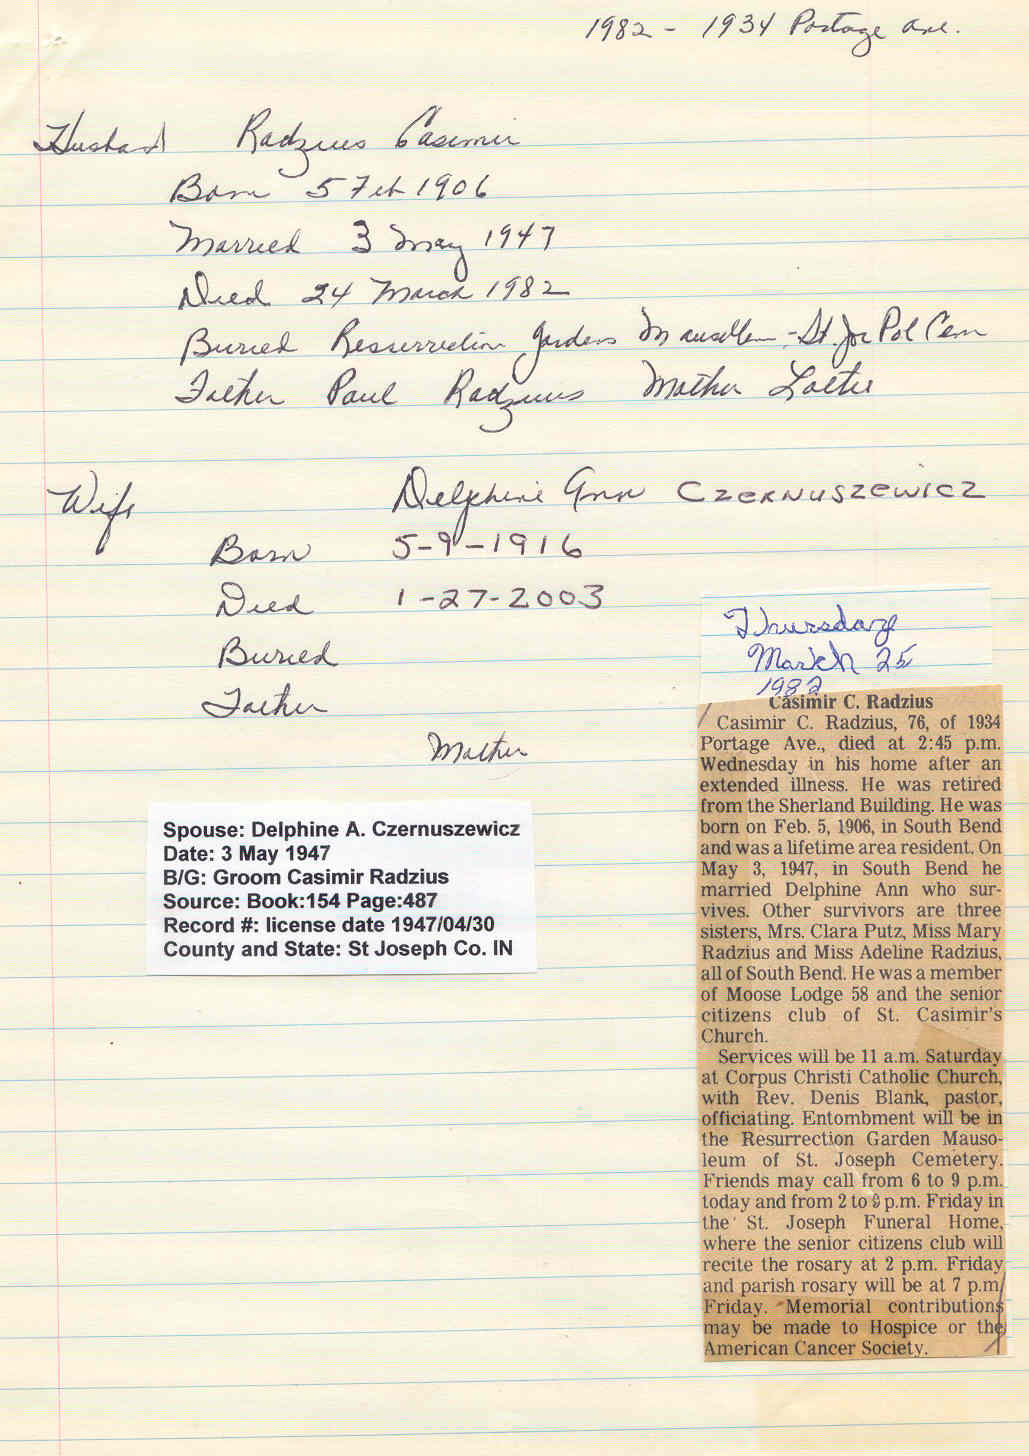 1982 - 1934 Portage Ave.
Husband Radzius Casimir
Born 5 Feb 1906
Married 3 May 1947
Died 24 March 1982
Buried Resurrection Gardens Mausolem - St. Joe Pol Cem
Father Paul Radzius Mother
Wife Delphine Ann CZERNUSZEWICZ
Born 5-9-1916
Died 1-27-2003
Buried
Father
Mother
Spouse: Delphine A. Czernuszewicz
Date: 3 May 1947
B/G: Groom Casimir Radzius
Source: Book:154 Page:487
Record #: license date 1947/04/30
County and State: St Joseph Co. IN
Thursday
March 25
1982
Casimir C. Radzius
Casimir C. Radzius, 76, of 1934
Portage Ave., died at 2:45 p.m.
Wednesday in his home after an
extended illness. He was retired
from the Sherland Building. He was
born on Feb. 5, 1906, in South Bend
and was a lifetime area resident. On
May 3, 1947, in South Bend he
married Delphine Ann who sur-
vives. Other survivors are three
sisters, Mrs. Clara Putz, Miss Mary
Radzius and Miss Adeline Radzius,
all of South Bend. He was a member
of Moose Lodge 58 and the senior
citizens club of St. Casimir's
Church.
Services will be 11 a.m. Saturday
at Corpus Christi Catholic Church,
with Rev. Denis Blank, pastor,
officiating. Entombment will be in
the Resurrection Garden Mauso-
leum of St. Joseph Cemetery.
Friends may call from 6 to 9 p.m.
today and from 2 to 9 p.m. Friday in
the St. Joseph Funeral Home,
where the senior citizens club will
recite the rosary at 2 p.m. Friday
and parish rosary will be at 7 p.m.
Friday. Memorial contributions
may be made to Hospice or the
American Cancer Society.